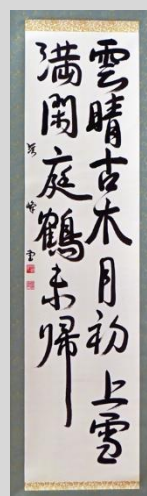 雲晴古木月初上雪
満閑庭鶴未帰